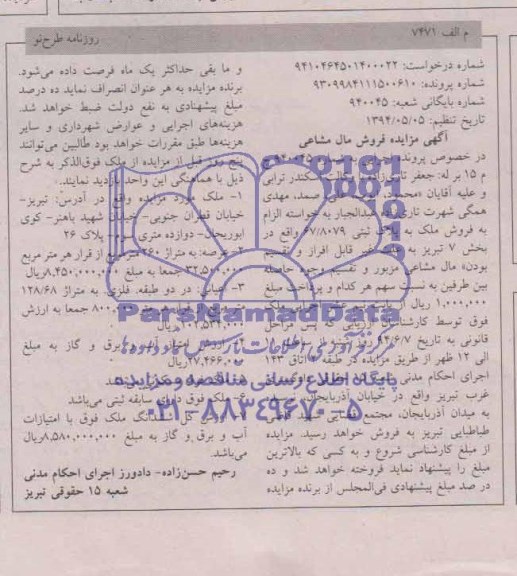 م الف ۷۴۷۱
روزنامه طرح‌نو
شماره درخواست: ۹۴۱۰۴۶۴۵۰۱۴۰۰۰۲۲
شماره پرونده: ۹۳۰۹۹۸۴۱۱۱۵۰۰۶۱۰
شماره بایگانی شعبه: ۹۴۰۰۴۵
تاریخ تنظیم: ۱۳۹۴/۰۵/۰۵
آگهی مزایده فروش مال مشاعی
در خصوص پرونده
م ۱۵ بر له: جعفر تابی‌زاده ترابی
و علیه آقایان «محمد، صمد، مهدی
همگی شهرت تاری عبدالجبار به خواسته الزام
به فروش ملک به پلاک ثبتی ۶۷/۸۰۷۹ واقع در
بخش ۷ تبریز به قابل افراز و
بودن» مال مشاعی مزبور و تقسیم وجوه حاصله
بین طرفین به نسبت سهم هر کدام و پرداخت مبلغ
۱,۰۰۰,۰۰۰ ریال ملک
فوق توسط کارشناسان ارزیابی که پس مراحل
قانونی به تاریخ ۹۴/۶/۷
الی ۱۲ ظهر از طریق مزایده در طبقه اتاق ۱۴۳
اجرای احکام مدنی
غرب تبریز واقع در خیابان آذربایجان،
به میدان آذربایجان، مجتمع قضایی شهید
طباطبایی تبریز به فروش خواهد رسید. مزایده
از مبلغ کارشناسی شروع و به کسی که بالاترین
مبلغ را پیشنهاد نماید فروخته خواهد شد و ده
در صد مبلغ پیشنهادی فی‌المجلس از برنده مزایده
و ما بقی حداکثر یک ماه فرصت داده می‌شود.
برنده مزایده به هر عنوان انصراف نماید ده درصد
مبلغ پیشنهادی به نفع دولت ضبط خواهد شد.
هزینه‌های اجرایی و عوارض شهرداری و سایر
هزینه‌ها طبق مقررات خواهد بود طالبین می‌توانند
پنج روز قبل از مزایده از ملک فوق‌الذکر به شرح
ذیل با هماهنگی این واحد بازدید نمایند.
۱- ملک مورد مزایده واقع در آدرس: تبریز-
خیابان قطران جنوبی- خیابان شهید باهنر- کوی
ابوریحان- دوازده متری پلاک ۲۶
۲- عرصه: به متراژ ۲۶۰ متر مربع از قرار هر متر مربع
۳۲,۵۰۰,۰۰۰ جمعا به مبلغ ۸,۴۵۰,۰۰۰,۰۰۰ریال
۳- اعیانی: در دو طبقه. فلزی. به متراژ ۱۲۸/۶۸
۸۰۰,۰۰۰ جمعا به ارزش
۱۰۲,۵۳۴,۰۰۰ریال
۴- ارزش امتیاز آب و برق و گاز به مبلغ
۲۷,۴۶۶,۰۰۰ریال
ملک فوق دارای سابقه ثبتی می‌باشد
ارزش کل ششدانگ ملک فوق با امتیازات
آب و برق و گاز به مبلغ ۸,۵۸۰,۰۰۰,۰۰۰ریال
می‌باشد.
رحیم حسن‌زاده- دادورز اجرای احکام مدنی
شعبه ۱۵ حقوقی تبریز
ParsNamadData
پایگاه اطلاع رسانی مناقصه و مزایده
۰۲۱-۸۸۳۴۹۶۷۰-۵